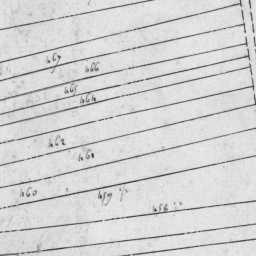 467
466
465
464
462
461
460
459
458